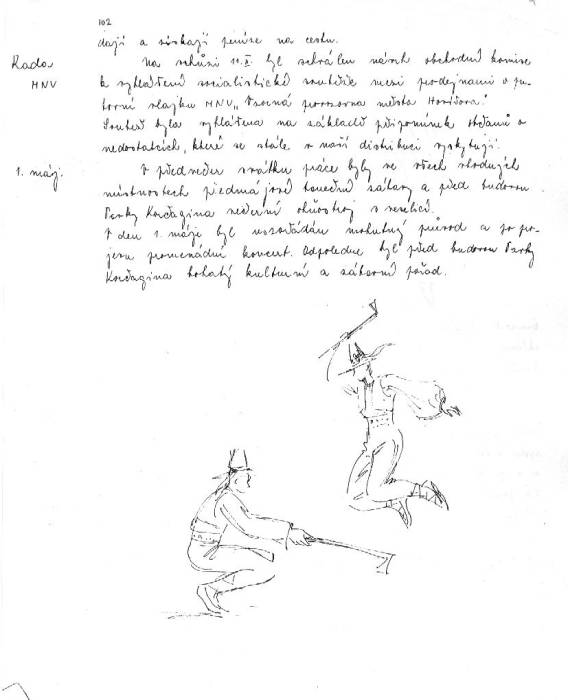 102
dají a získají peníze na cestu.
Rada MNV
Na schůzi 11.V. byl schválen návrh obchodní komise
k vyhlášení socialistické soutěže mezi prodejnami o pu-
tovní vlajku MNV „Vzorná provozovna města
Soutěž byla vyhlášena na základě připomínek občanů o
nedostatcích, které se stále v naší distribuci vyskytují.
1. máj.
V předvečer svátku práce byly ve všech vhodných
místnostech předmájové taneční zábavy a před budovou
Pavky Korčagina večerní ohňostroj s veselicí.
V den 1. máje byl uspořádán mohutný průvod a po pro-
jevu promenádní koncert. Odpoledne byl před budovou Pavky
Korčagina bohatý kulturní a zábavní pořad.